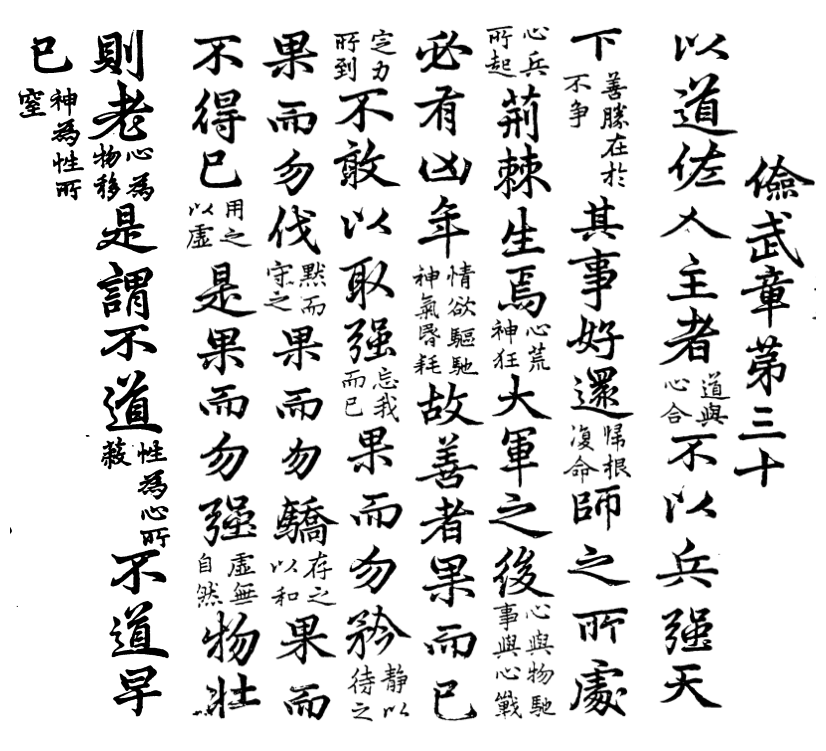 儉武章第三十
以道佐人主者道與心合不以兵强天
下善勝在於不争其事好還歸根復命師之所處
心兵所起荆棘生焉心荒神狂大軍之後心與物馳事與心戰
必有凶年情欲驅馳神氣昬耗故善者果而已
定力所到不敢以取强忘我而已果而勿矜静以待之
果而勿伐默而守之果而勿驕存之以和果而
不得已用之以虛是果而勿强虛無自然物壯
則老心為物移是謂不道性為心所蔽不道早
已神為性所窒